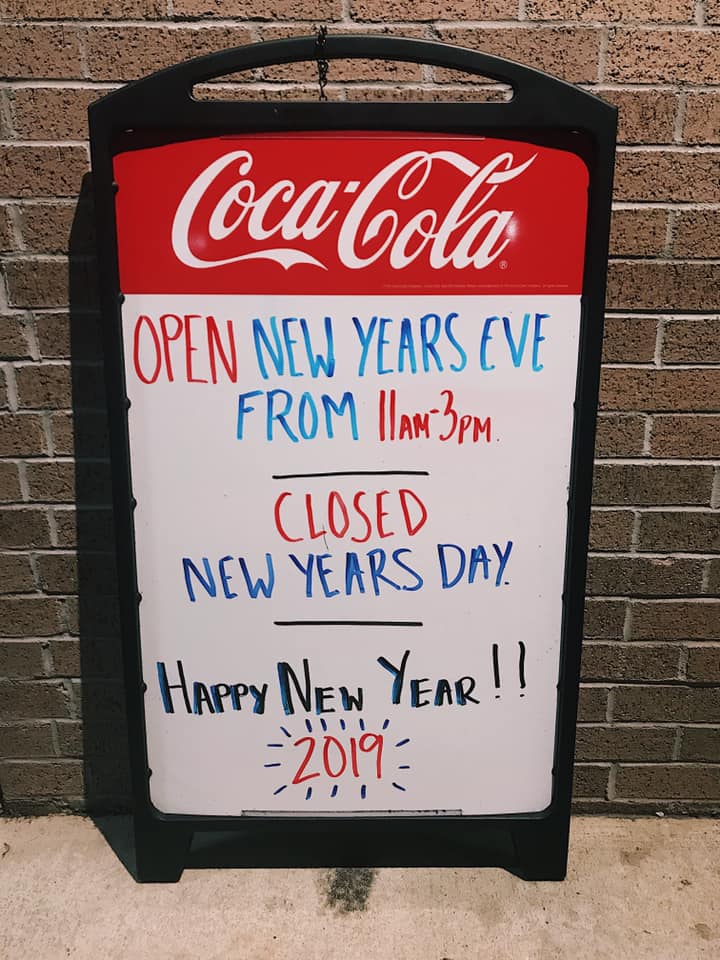 Coca-Cola®
OPEN NEW YEARS EVE
FROM 11AM-3PM.
CLOSED
NEW YEARS DAY.
HAPPY NEW YEAR!!
2019